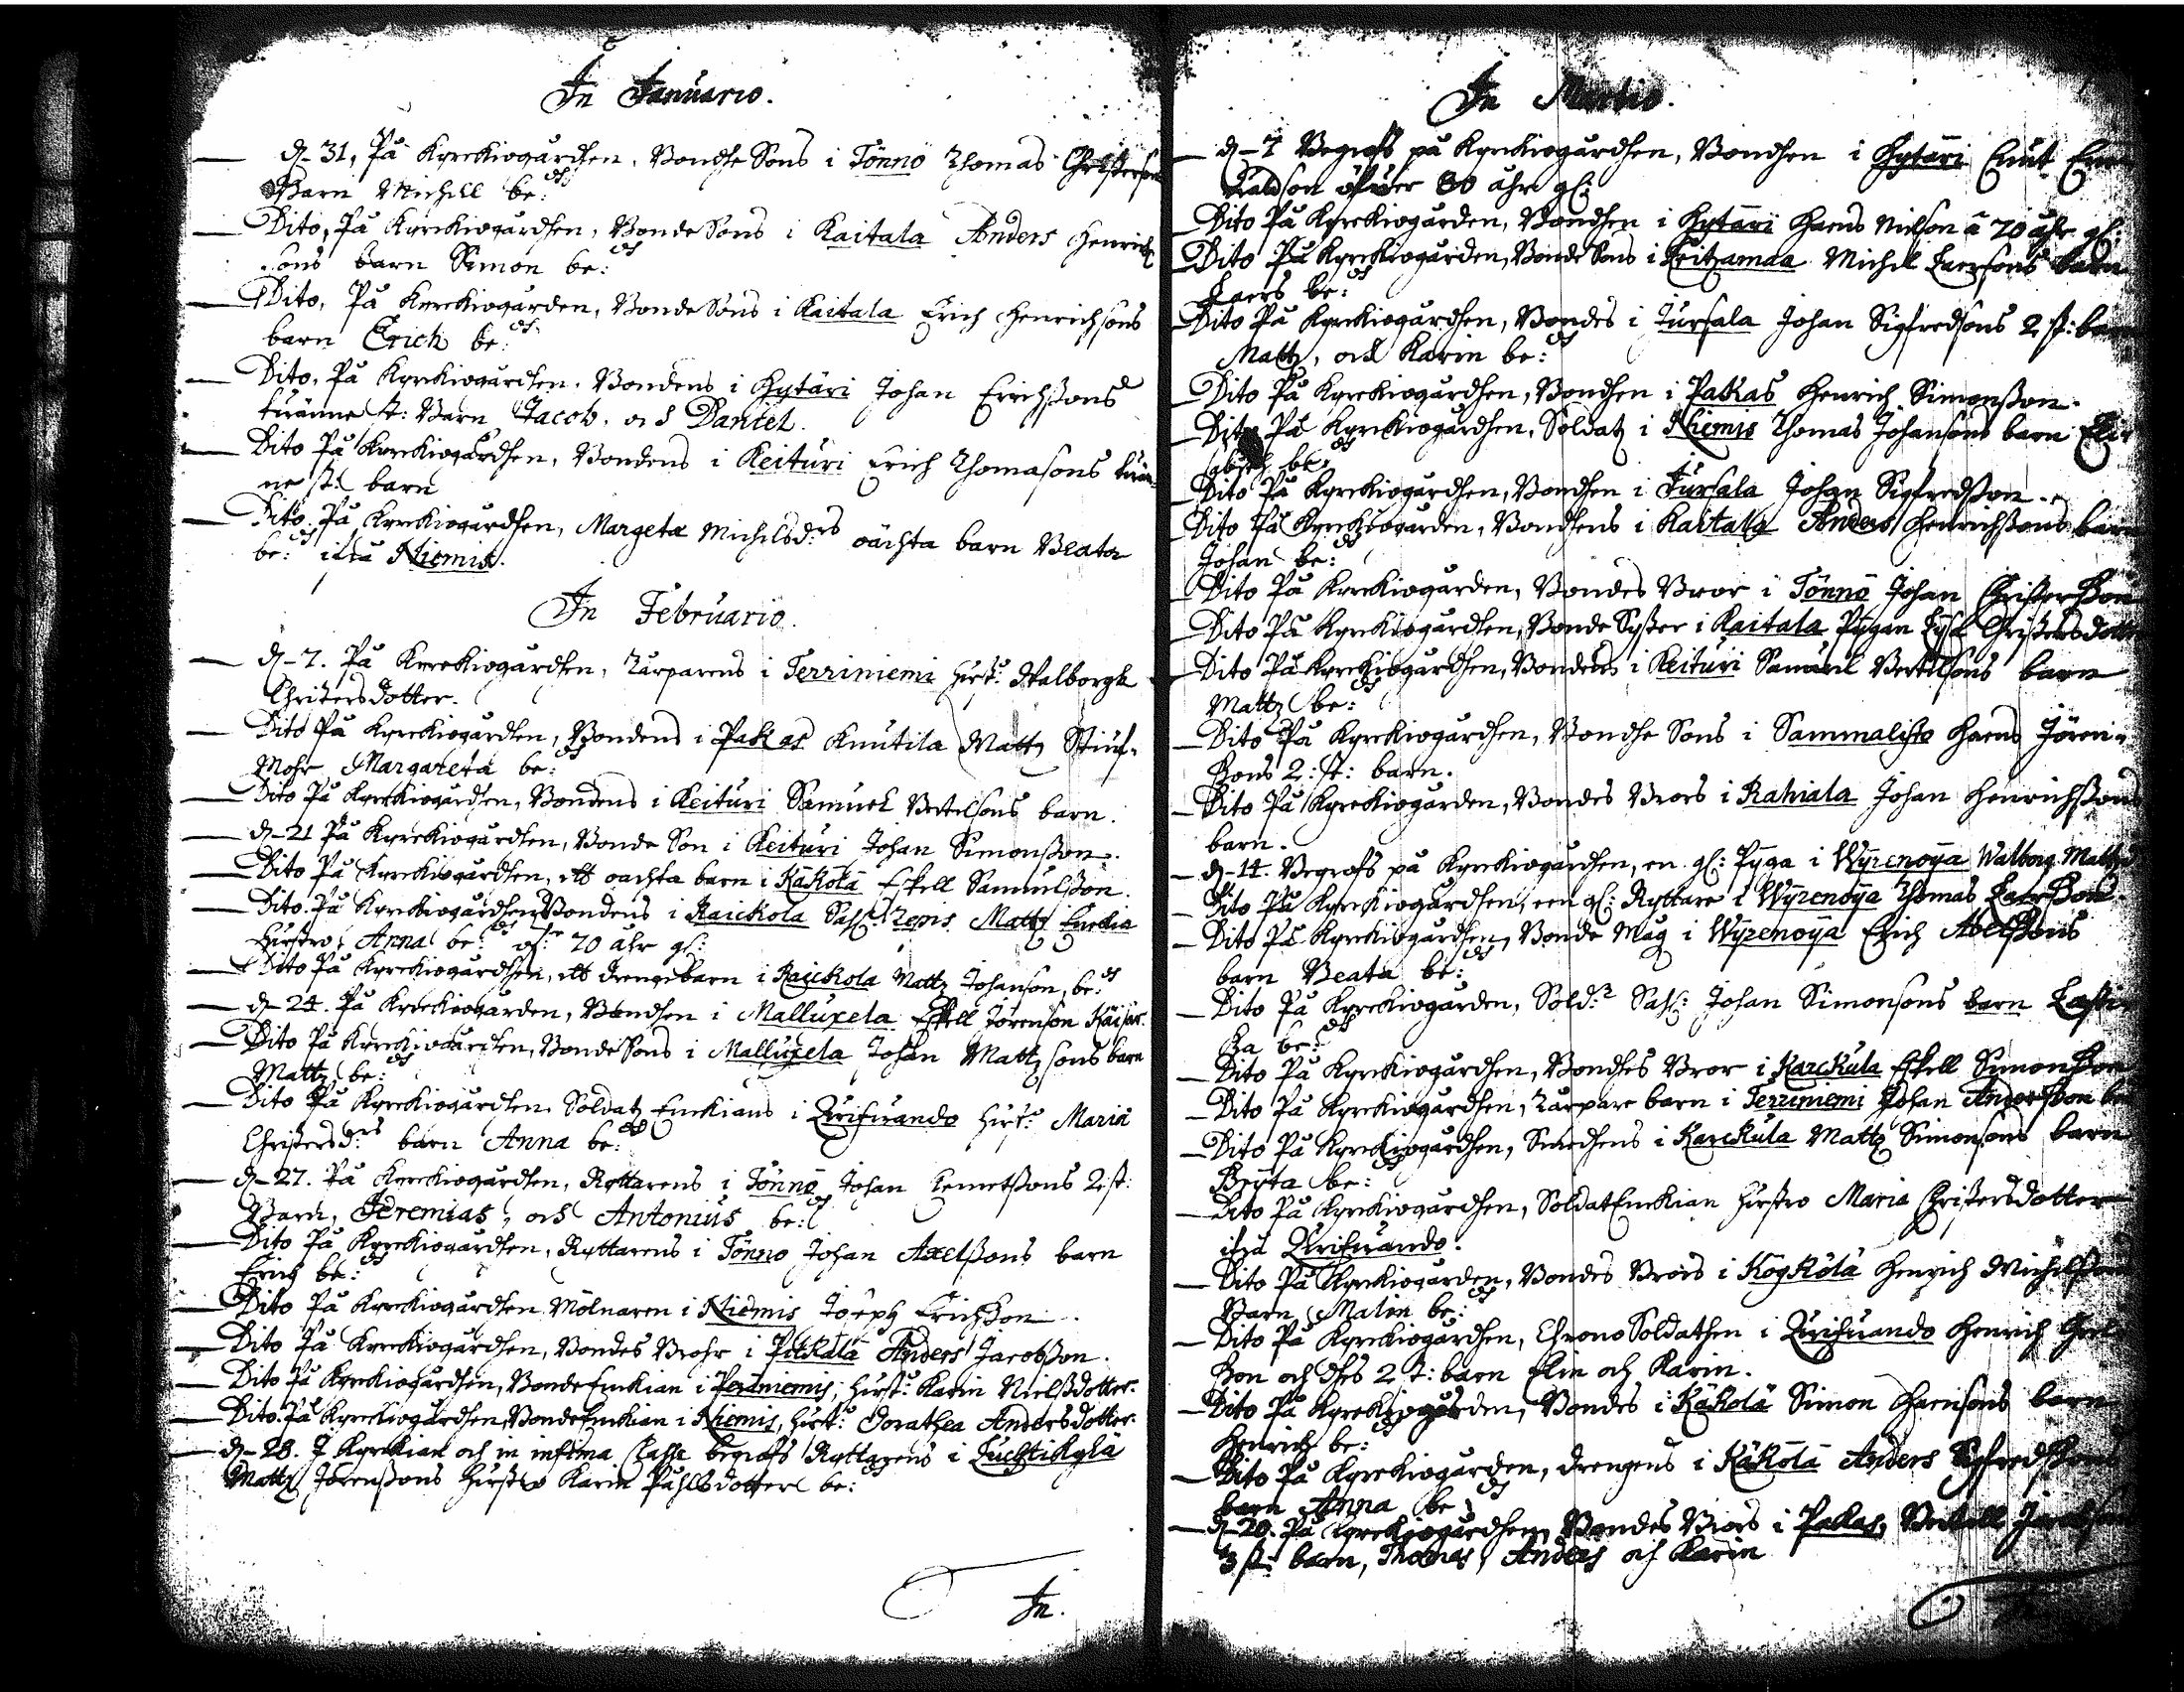 In Januario.
d. 31, På Kyrckiogårdhen, Bondhe Sons i Tönnö Thomas Christersons
Barn Michill be:dh
Dito, På Kyrckiogårdhen, Bonde Sons i Kaitala Anders Henrich
sons barn Simon be:dh
Dito, På Kyrckiogården, Bonde Sons i Kaitala Erich Henrichsons
barn Erich be:dh
Dito, På Kyrckiogården, Bondens i Hytäri Johan Erichssons
tuänne st: Barn Jacob, och Daniel.
Dito På Kyrckiogårdhen, Bondens i Keituri Erich Thomasons tuän-
ne st: barn
Dito. På Kyrckiogårdhen, Margeta Michilsd:rs oächta barn Beata
be:dh ifrå Niemis.
In Februario.
d. 7. På Kyrckiogårdhen, Torparens i Terriniemi Hust: Walborgh
Christersdotter.
Dito På Kyrckiogårdhen, Bondens i Pakas Knutila Mattz Stiuf-
Mohr Margareta be:dh
Dito På Kyrckiogårdhen, Bondens i Keituri Samuel Bertelsons barn.
d. 21 På Kyrckiogårdhen, Bonde Son i Keituri Johan Simonsson.
Dito På Kyrckiogårdhen, ett oächta barn i Käkölä Eskell Samulsson.
Dito. På Kyrckiogårdhen, Bondens i Raickola Sahl: Mattz Enckia
Hustro Anna be:dh 70 åhr gl:
Dito På Kyrckiogårdhen, ett drengebarn i Raickola Mattz Johanson, be:dh
d. 24. På Kyrckiogården, Bondhen i Mallusela Eskell Jörenson
Dito På Kyrckiogården, Bonde Sons i Mallusela Johan Mattzsons barn
Mattz be:dh
Dito På Kyrckiogårdhen Soldatz Enckians i Hust: Maria
Christersd:rs barn Anna be:dh
d. 27. På Kyrckiogårdhen, Ryttarens i Tönnö Johan 2 st:
Barn, Jeremias, och Antonius be:dh
Dito På Kyrckiogårdhen, Ryttarens i Tönno Johan Axelssons barn
Erich be:dh
Dito På Kyrckiogårdhen Mölnaren i Niemis Joseph Erichsson.
Dito På Kyrckiogårdhen, Bondes Brohr i Pitkälä Anders Jacobsson.
Dito På Kyrckiogårdhen, Bonde Enckian i Hust: Karin Nielssdotter.
Dito. På Kyrckiogårdhen, Bonde Enckian i Niemis, Hust: Dorathea Andersdotter.
d. 28. I Kyrckian och in infima Classe begrofs Ryttarens i Luchtikylä
Mattz Jörenssons Hustro Karin Påhlsdotter be:dh
In.
In Martio.
d. 7 Begrofs på Kyrckiogårdhen, Bondhen i Hytäri Cnut
öfwer 80 åhr gl:
Dito På Kyrckiogården, Bondhen i Hytäri Hans Nilson à 70 åhr gl:
Dito På Kyrckiogården, Bonde Sons i Michil Larssons barn
Lars be:dh
Dito På Kyrckiogårdhen, Bondes i Tursala Johan Sigfredsons 2 st: barn
Mattz, och Karin be:dh
Dito På Kyrckiogårdhen, Bondhen i Pakas Henrich Simonsson.
Dito På Kyrckiogårdhen, Soldatz i Niemis Thomas Johansons barn
be:dh
Dito På Kyrckiogårdhen, Bondhen i Tursala Johan Sigfredsson.
Dito På Kyrckiogården, Bondhens i Kaitala Anders Henrichssons barn
Johan be:dh
Dito På Kyrckiogården, Bondes Bror i Tönnö Johan Christersson
Dito På Kyrckiogårdhen, Bonde Syster i Kaitala Pygan Lisa Christersdotter
Dito På Kyrckiogårdhen, Bondens i Keituri Samuel Bertelsons barn
Mattz be:dh
Dito På Kyrckiogårdhen, Bondhe Sons i Sammalisto Hans Jören-
sons 2: st: barn.
Dito På Kyrckiogården, Bondes Brors i Rahiala Johan Henrichssons
barn.
d. 14. Begrofs på Kyrckiogårdhen, en gl: Pyga i Wyrenoya Walborg
Dito På Kyrckiogårdhen, een gl: Ryttare i Wyrenoya Thomas Larsson.
Dito På Kyrckiogårdhen, Bonde Måg i Wyrenoya Erich Abelssons
barn Beata be:dh
Dito På Kyrckiogården, Sold:r Sahl: Johan Simonsons barn
be:dh
Dito På Kyrckiogårdhen, Bondhes Bror i Karckula Eskell Simonsson
Dito På Kyrckiogårdhen, Torpare barn i Terriniemi Johan Andersson
Dito På Kyrckiogårdhen, Smedhens i Karckula Mattz Simonsons barn
Bryta be:dh
Dito På Kyrckiogårdhen, Soldat Enckian Hustro Maria Christersdotter
ifrå
Dito På Kyrckiogården, Bondes Brors i Kögkölä Henrich Michilssons
Barn Malin be:dh
Dito På Kyrckiogårdhen, Chrono Soldathen i Henrich
son och dhes 2 st: barn Elin och Karin.
Dito På Kyrckiogården, Bondes i Käkölä Simon Hansons barn
Henrich be:dh
Dito På Kyrckiogården, drengens i Käkölä Anders Sigfredssons
barn Anna be:dh
d. 20. På Kyrckiogårdhen, Bondes Brors i Pakas,
3 st: barn, Thomas, Anders och Karin